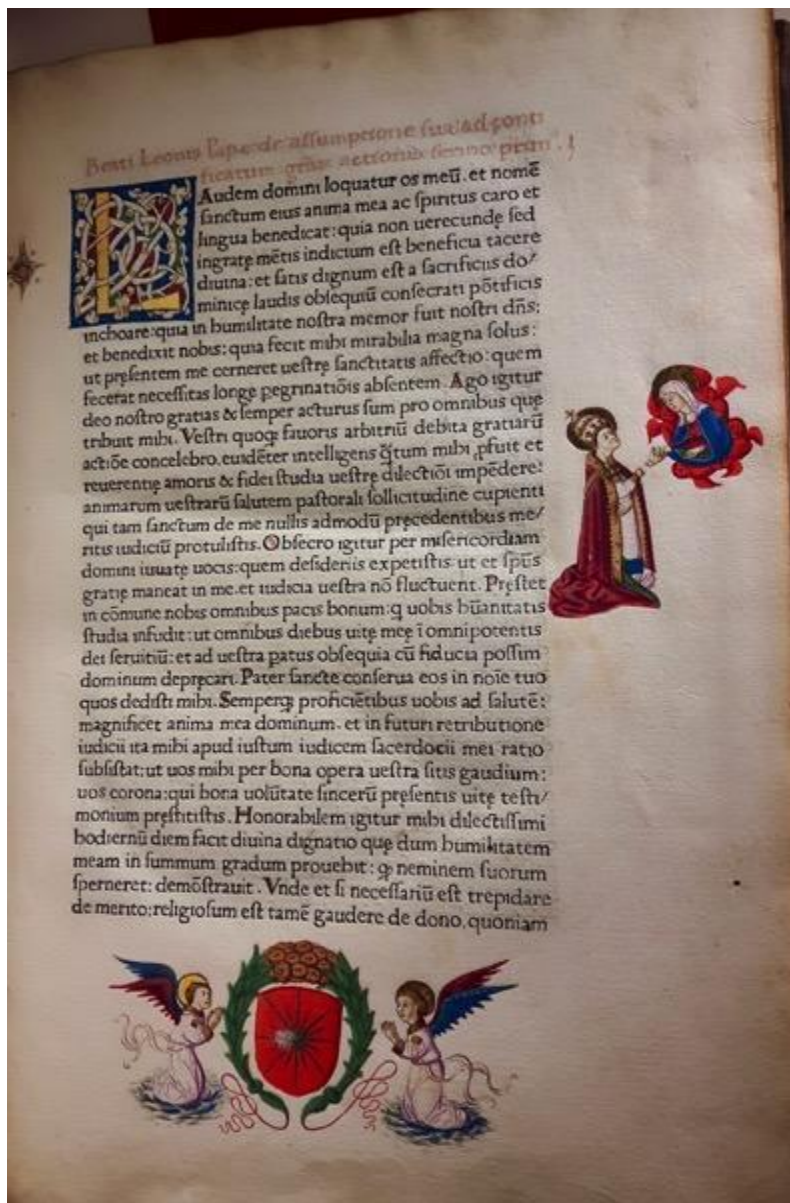 Beati Leonis Pape de assumptione sua ad ponti
ficatum gr̃as actionis sermo prim
LAudem domini loquatur os meū. et nomē
sanctum eius anima mea ac spiritus caro et
lingua benedicat: quia non uerecundę sed
ingratę mētis indicium est beneficia tacere
diuina: et satis dignum est a sacrificiis do/
minicę laudis obsequiū consecrati pōtificis
inchoare: quia in humilitate nostra memor fuit nostri dñs:
et benedixit nobis: quia fecit mihi mirabilia magna solus:
ut pręsentem me cerneret uestrę sanctitatis affectio: quem
fecerat necessitas longę pegrinatiōis absentem. Ago igitur
deo nostro gratias & semper acturus sum pro omnibus quę
tribuit mihi. Vestri quoq; fauoris arbitriū debita gratiarū
actiōe concelebro. euidēter intelligens q̃tum mihi pfuit et
reuerentię amoris & fidei studia uestrę dilectiōi impēdere:
animarum uestrarū salutem pastorali sollicitudine cupienti
qui tam sanctum de me nullis admodū pręcedentibus me/
ritis iudiciū protulistis. Obsecro igitur per misericordiam
domini iuuatę uocis: quem desideriis expetistis ut et spūs
gratię maneat in me. et iudicia uestra nō fluctuent. Pręstet
in cōmune nobis omnibus pacis bonum: q uobis hūanitatis
studia infudit: ut omnibus diebus uitę meę ī omnipotentis
dei seruitiū: et ad uestra patus obsequia cū fiducia possim
dominum deprecari. Pater sancte conserua eos in noīe tuo
quos dedisti mihi. Semperq; proficiētibus uobis ad salutē:
magnificet anima mea dominum. et in futuri retributione
iudicii ita mihi apud iustum iudicem sacerdocii mei ratio
subsistat: ut uos mihi per bona opera uestra sitis gaudium:
uos corona: qui bona uolūtate sincerū pręsentis uitę testi/
monium pręstitistis. Honorabilem igitur mihi dilectissimi
hodiernū diem facit diuina dignatio quę dum humilitatem
meam in summum gradum prouehit: q̃ neminem suorum
sperneret: demōstrauit. Vnde et si necessariū est trepidare
de merito: religiosum est tamē gaudere de dono. quoniam